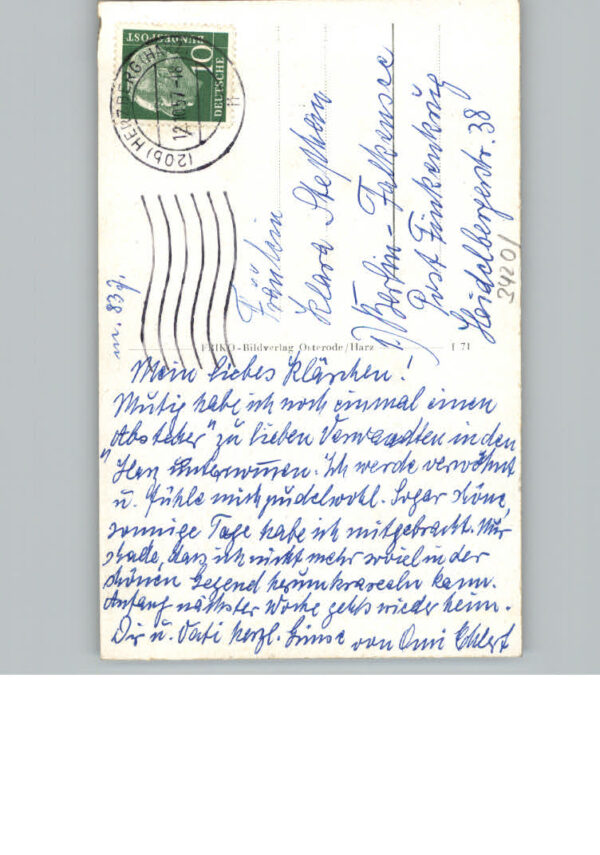 DEUTSCHE
BUNDESPOST
10
(20b) HERZBERG (HARZ)
12.10.57
Fräulein
Klara Stephan
1) Berlin-Falkensee
Post Finkenkrug
Heidelbergerstr. 38
3420/
m. 839.
FRIKO-Bildverlag Osterode/Harz
f 71
Mein liebes Klärchen!
Mutig habe ich noch einmal einen
"Abstecher" zu lieben Verwandten in den
Harz unternommen. Ich werde verwöhnt
u. fühle mich pudelwohl. Sogar schöne,
sonnige Tage habe ich mitgebracht. Nur
schade, dass ich nicht mehr soviel in der
schönen Gegend herumkraxeln kann.
Anfang nächster Woche gehts wieder heim.
Dir u. Vati herzl. Grüsse von Omi Ehlert